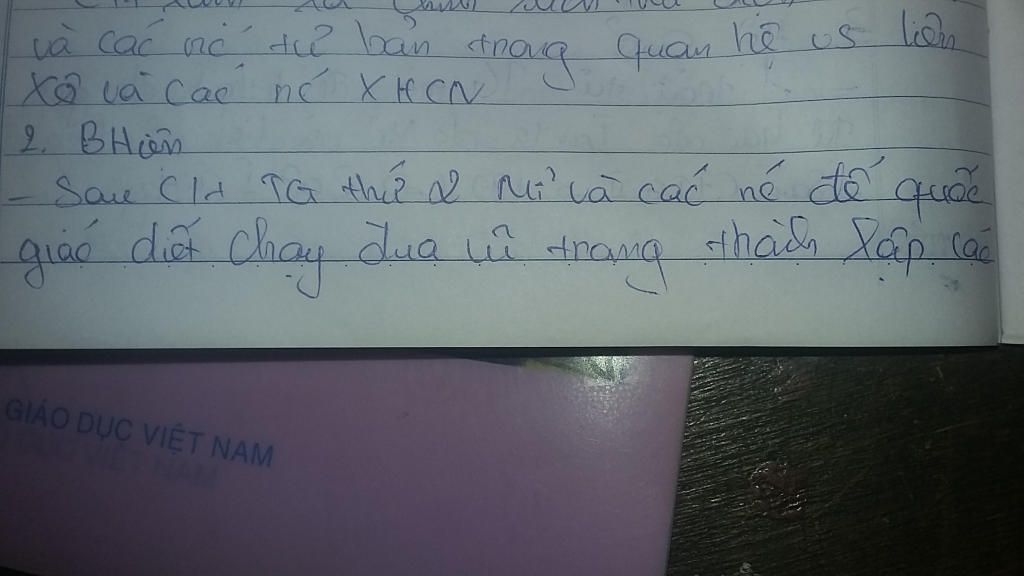 và các nc' tư bản trong quan hệ vs liên
Xô và các nc' XHCN
2. BHiện
- Sau CH TG thứ 2 Mĩ và các nc' đế quốc
giáo diết chạy đua vũ trang thành lập các
GIÁO DỤC VIỆT NAM